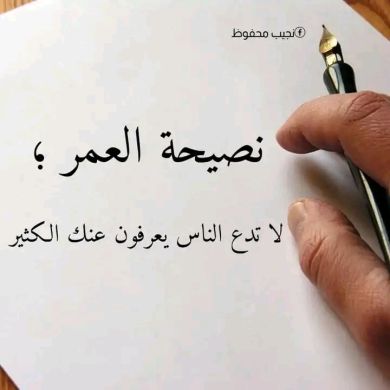 نجيب محفوظ
نصيحة العمر ؛
لا تدع الناس يعرفون عنك الكثير